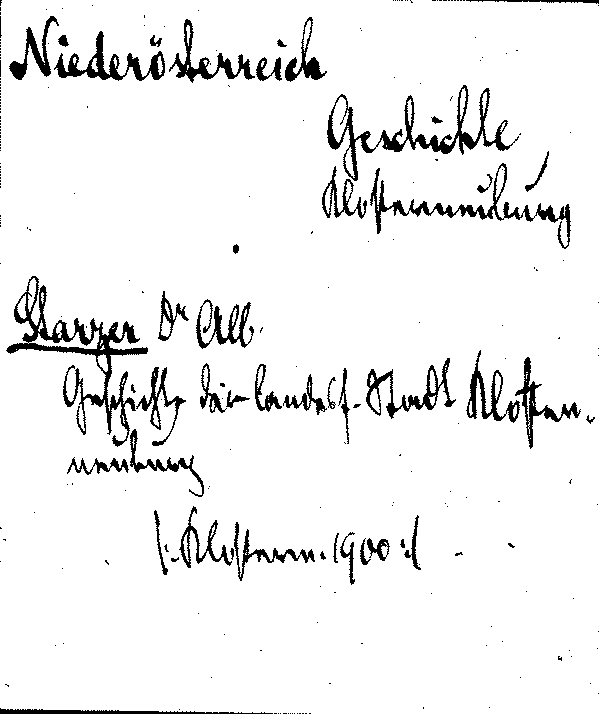 Niederösterreich
Geschichte
Klosterneuburg
Starzer Dr Alb.
Geschichte der landesf. Stadt Kloster-
neuburg
/:Klostern. 1900:/